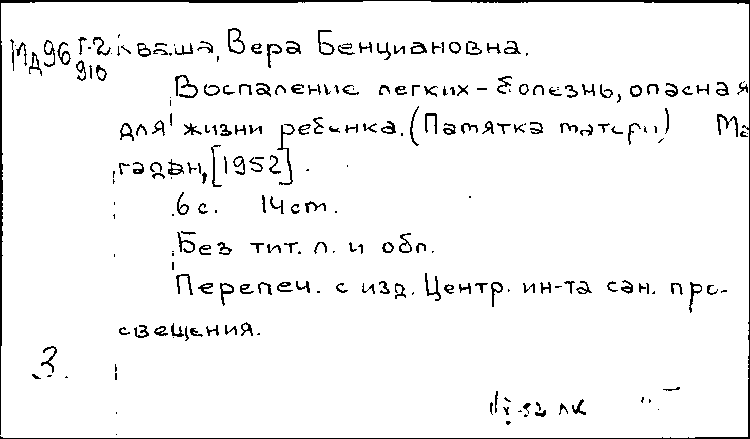 Мд96 Г-2 Кваша, Вера Бенциановна.
910
Воспаление легких - болезнь, опасная
для жизни ребенка. (Памятка матери) Ма
гадан, [1952].
6 с. 14 см.
Без тит. л. и обл.
Перепеч. с изд. Центр. ин-та сан. про-
свещения.
3.